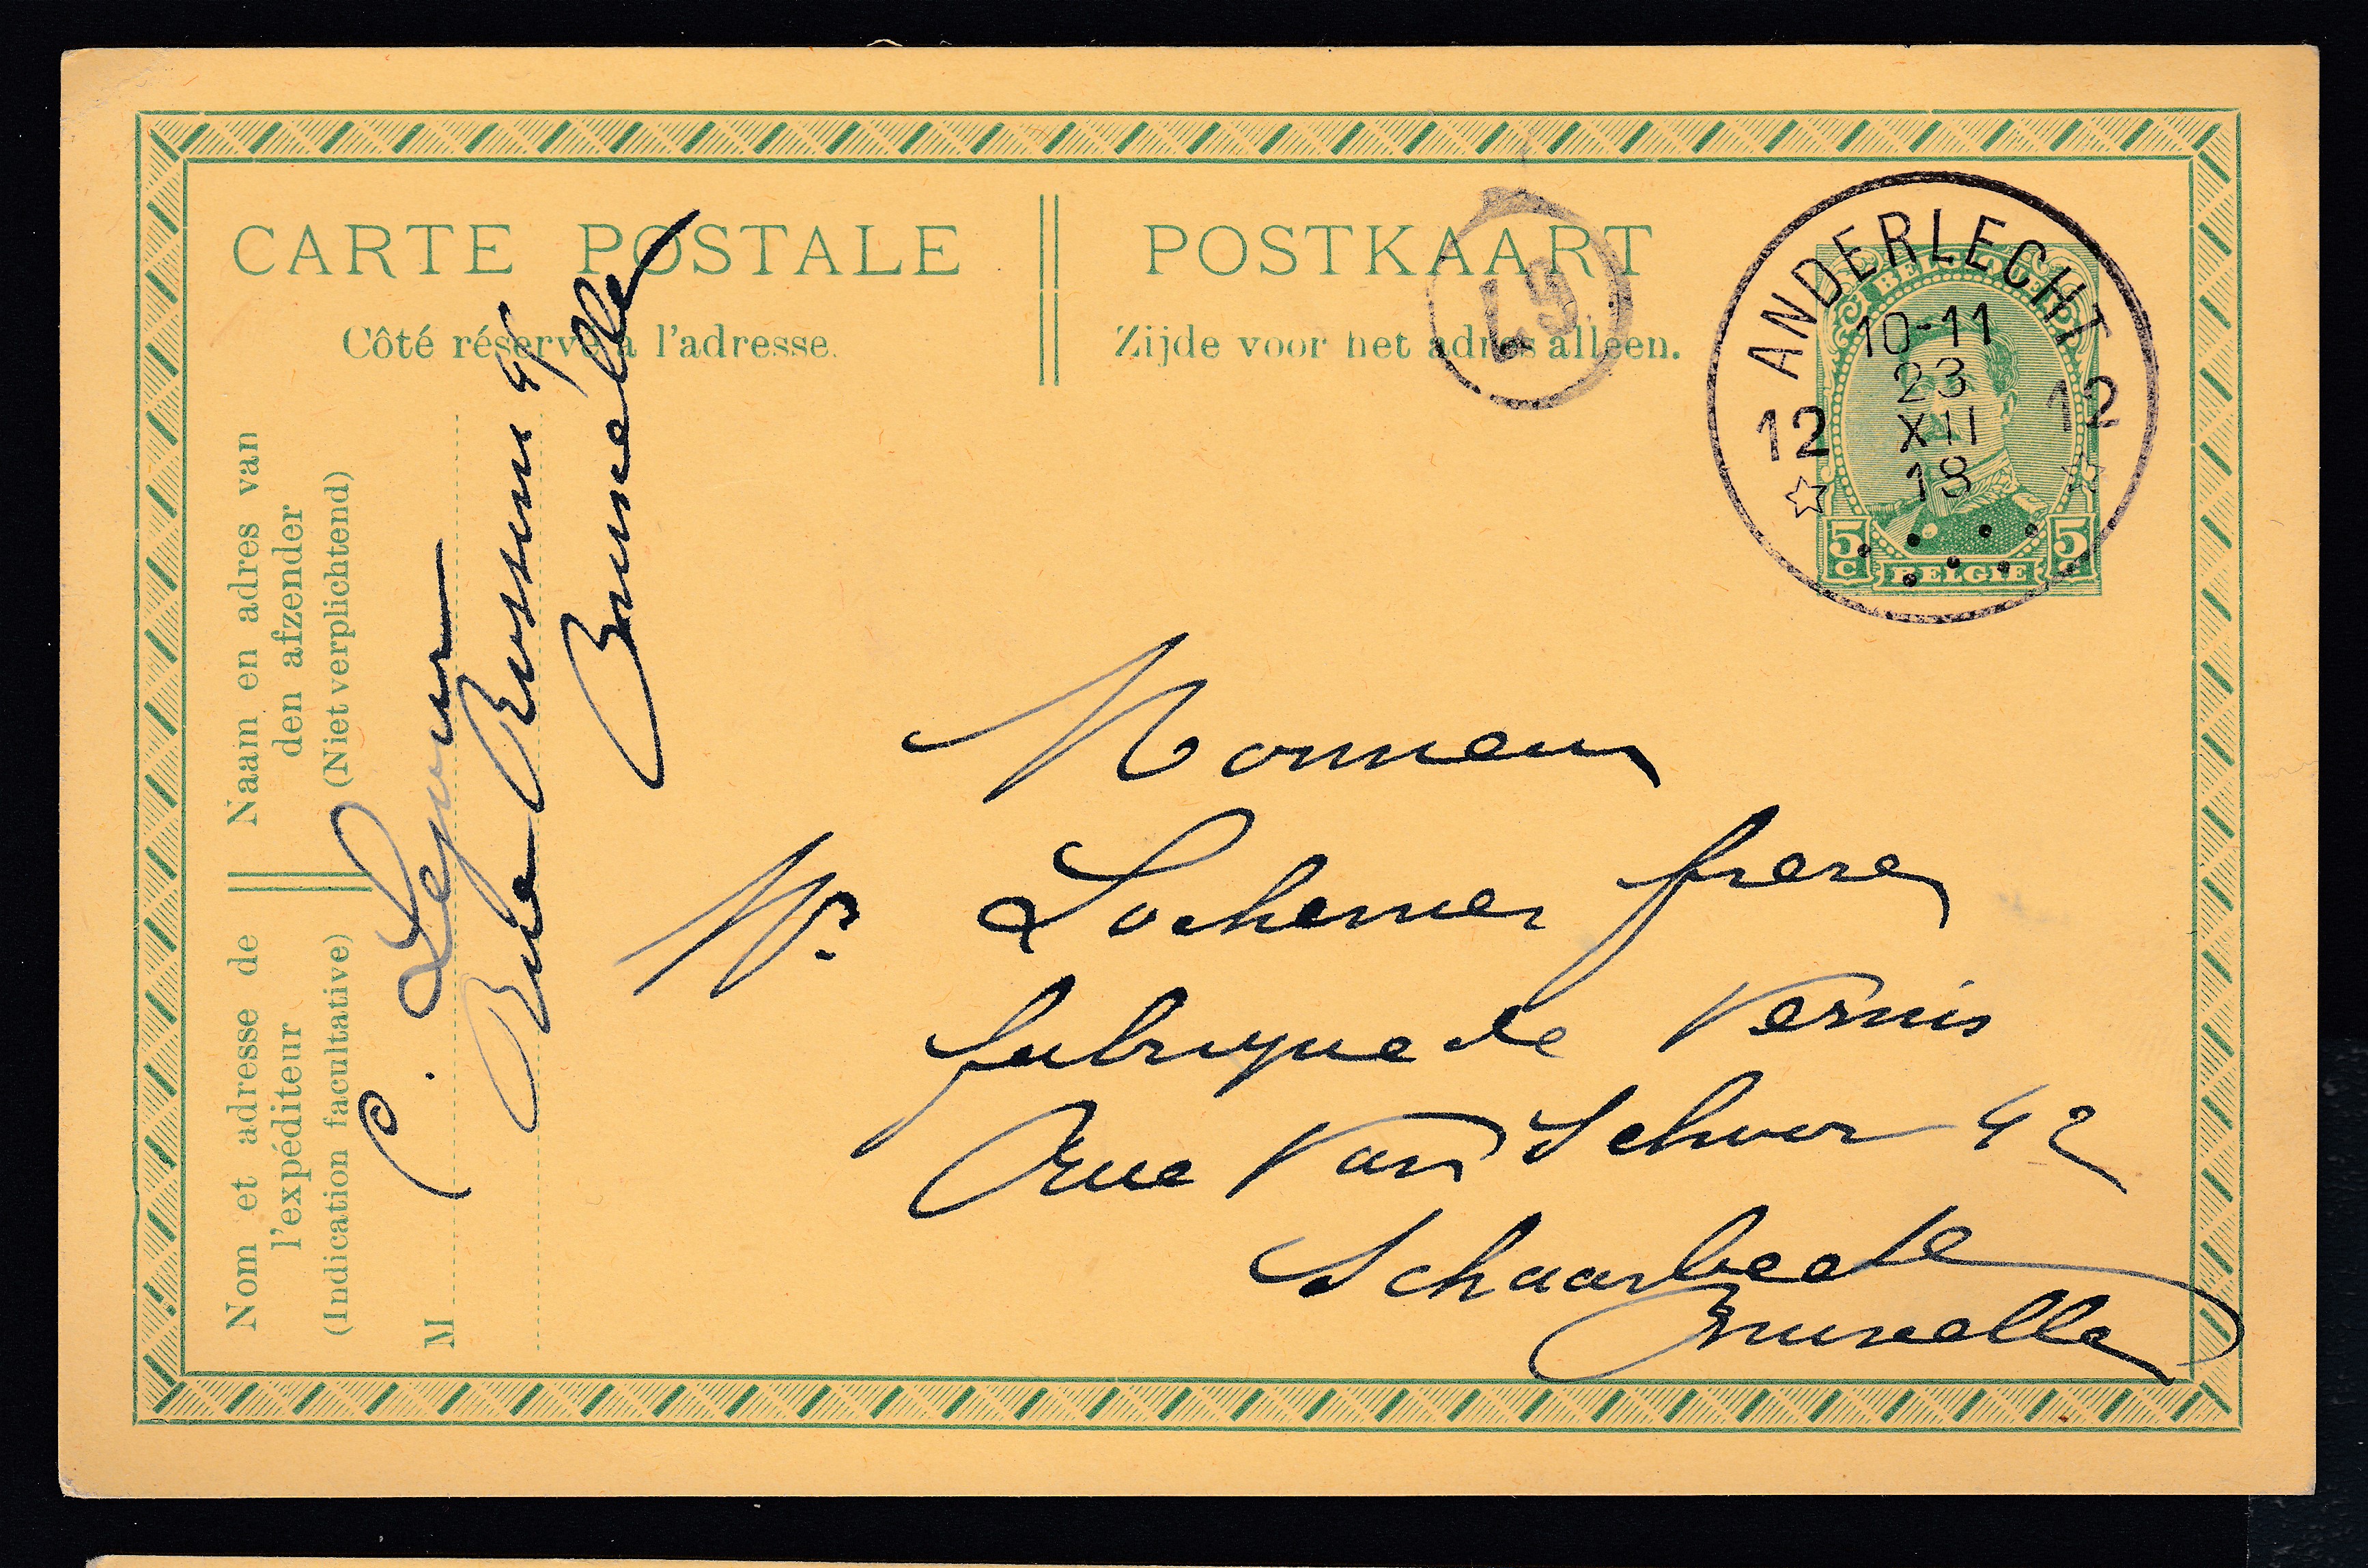 CARTE POSTALE
Côté réservé à l'adresse.
POSTKAART
Zijde voor het adres alleen.
ANDERLECHT
10-11
23
XII
18
12 12
BELGIQUE
5c 5c
BELGIË
Naam en adres van
den afzender
(Niet verplichtend)
Nom et adresse de
l'expéditeur
(Indication facultative)
M
C. Lejour
Rue Rossini 4
Bruxelles
Monsieur
Mr frères
fabrique de Vernis
Rue Van Schoor 42
Schaarbeek
Bruxelles